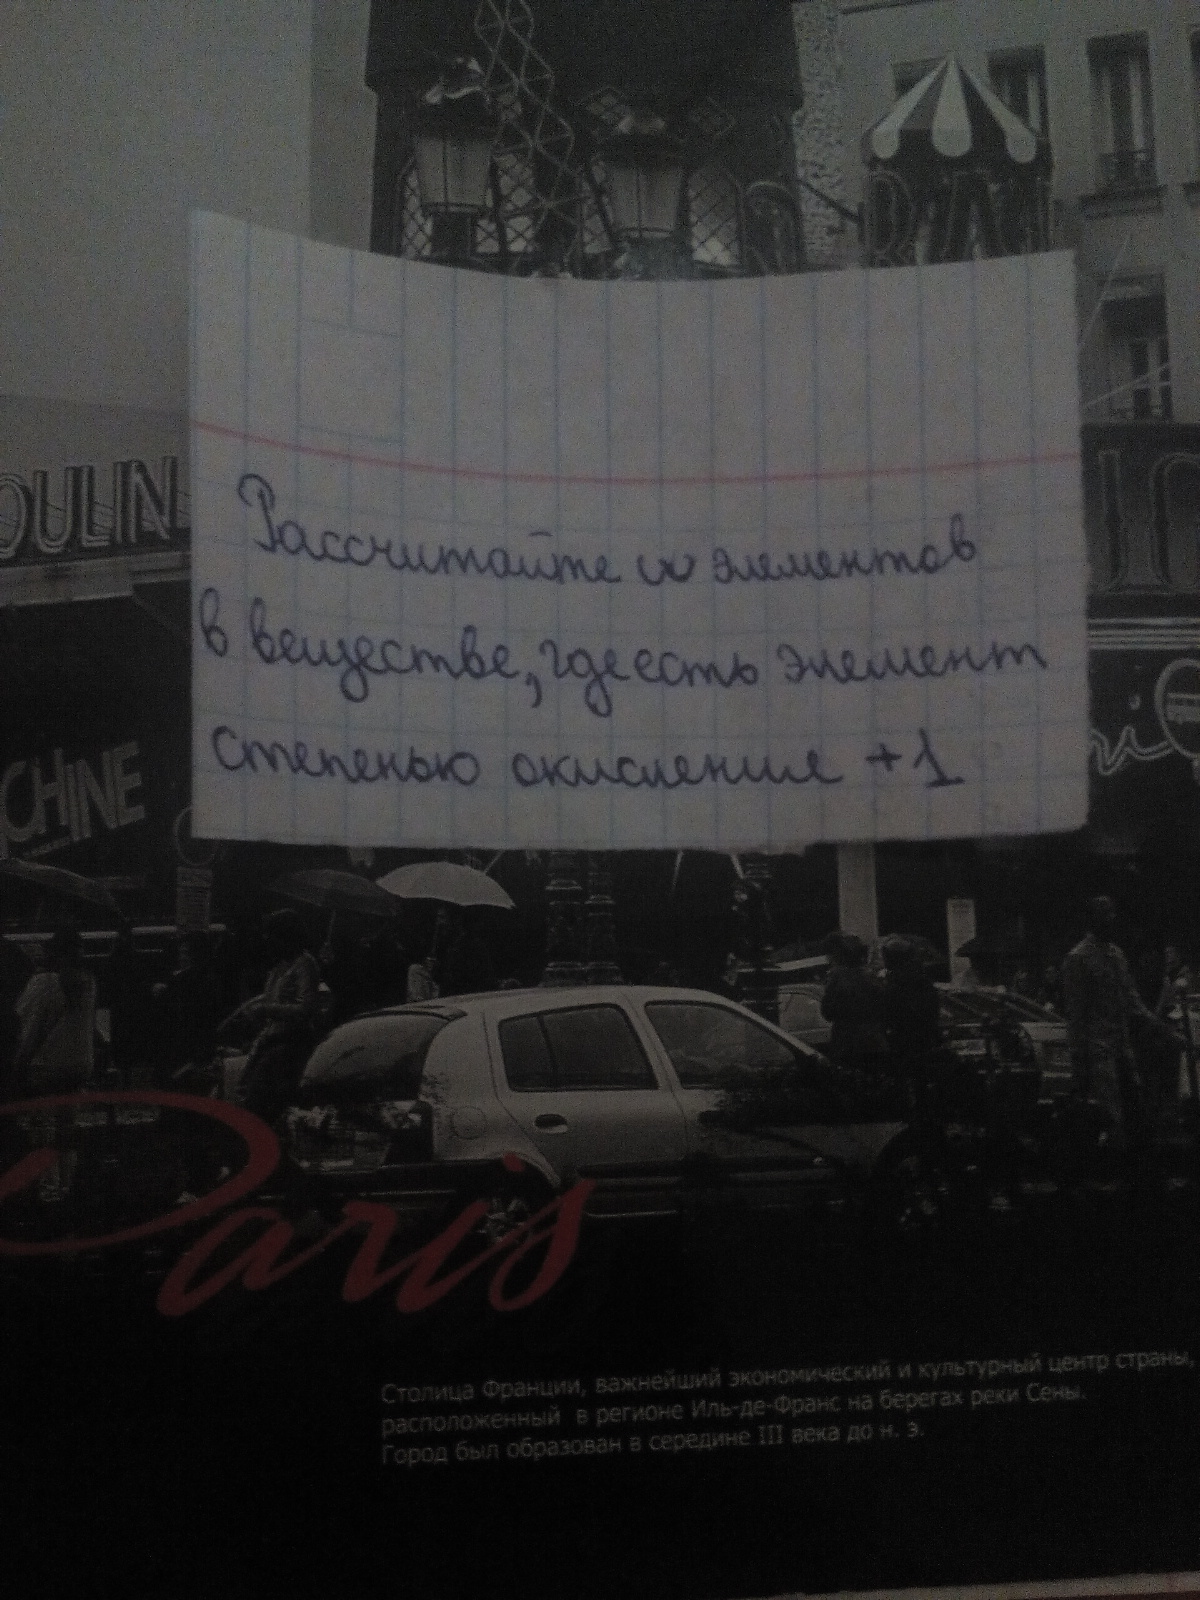 OULIN
CHINE
Рассчитайте ω элементов
в веществе, где есть элемент
степенью окисления +1
Paris
Столица Франции, важнейший экономический и культурный центр страны,
расположенный в регионе Иль-де-Франс на берегах реки Сены.
Город был образован в середине III века до н. э.